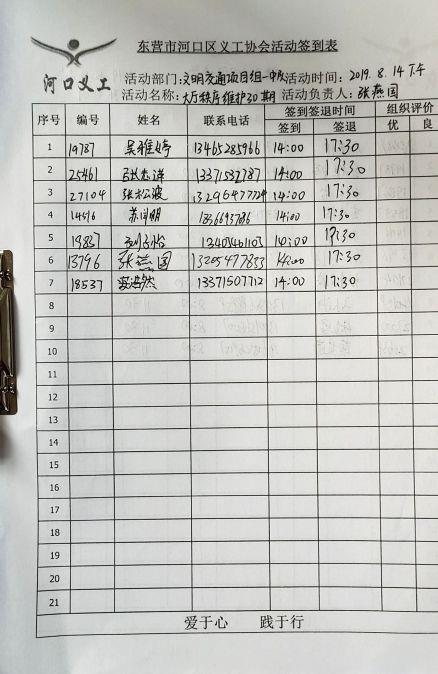 东营市河口区义工协会活动签到表
河口义工
活动部门:文明交通项目组一中队 活动时间:2019.8.14下午
活动名称:大厅秩序维护30期 活动负责人:张燕国
序号 编号 姓名 联系电话 签到签退时间 组织评价
签到 签退 优 良
1 19787 吴雅婷 13465285966 14:00 17:30
2 25461 13371532787 14:00 17:30
3 27104 张松波 13296477724 14:00 17:30
4 14516 苏同明 14:00 17:30
5 19837 17:30
6 13796 张燕国 13205477833 14:00 17:30
7 18537 13371507712 14:00 17:30
8
9
10
11
12
13
14
15
16
17
18
19
20
21
爱于心 践于行